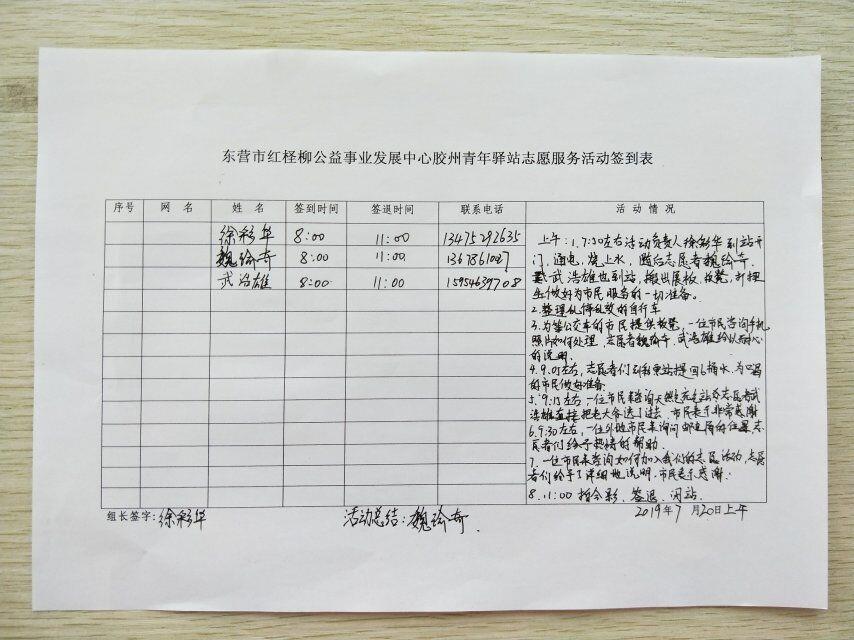 东营市红柽柳公益事业发展中心胶州青年驿站志愿服务活动签到表
序号 网 名 姓 名 签到时间 签退时间 联系电话 活 动 情 况
徐彩华 8:00 11:00 13475292635
魏绘奇 8:00 11:00
武浩雄 8:00 11:00 15954639708
上午:1.7:30左右活动负责人徐彩华到站开
门,通电,烧上水,随后志愿者魏绘奇
武浩雄也到站,搬出展板、板凳,并把
做好为市民服务的一切准备。
2.整理乱停乱放的自行车
3.为等公交车的市民提供板凳,一位市民咨询手机
照片如何处理,志愿者魏绘奇、武浩雄给以耐心
的说明。
4.9.05左右,志愿者们到 站提回6桶水,为口渴
的市民做好准备.
5.9:15左右,一位市民来咨询天然气充气站 志愿者武
浩雄直接把老大爷送了过去,市民表示非常感谢
6.9:30左右,一位外地市民来询问邮电局的位置,志
愿者们给予热情的帮助.
7.一位市民来咨询如何加入我们的志愿活动,志愿
者们给予了详细地说明,市民表示感谢.
8.11:00 拍合影、签退、闭站.
组长签字:徐彩华 活动总结:魏绘奇. 2019年7月20日上午